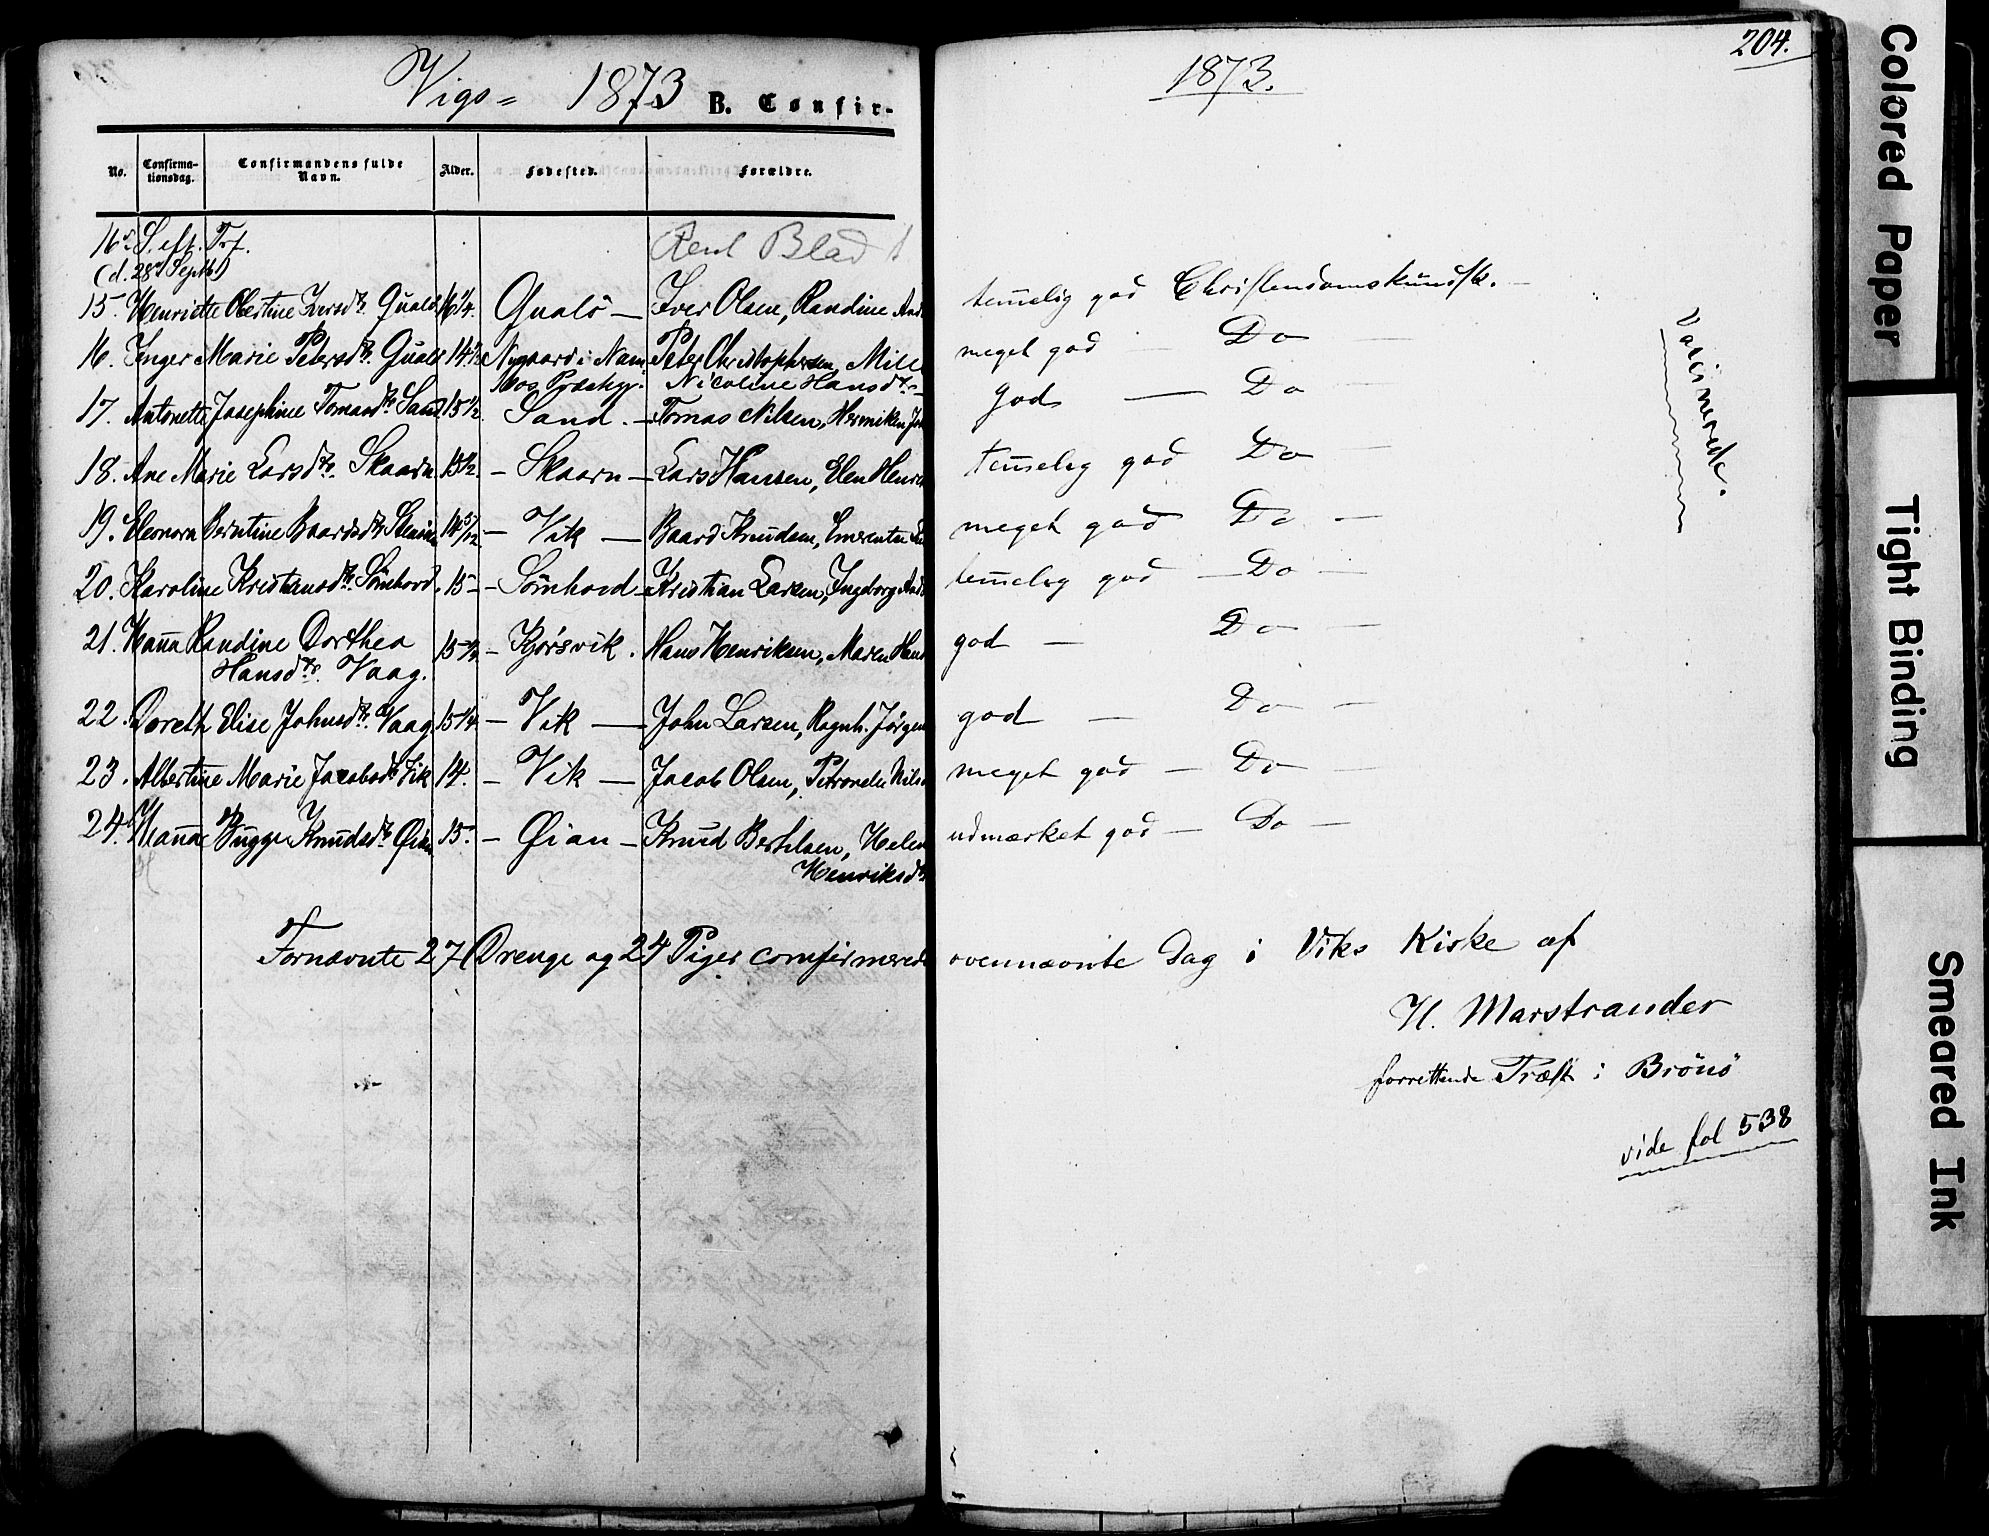 Vigs = 1873 B. Confir-
No. Confirma-tionsdag. Confirmandens fulde Navn. Alder. Fødested. Forældre.
16de S. eft. Trf. Rent Blad
(d. 28de Septb)
15. Henriette Obertine Iversdtr. Qualø 16 1/4. Qualö — Iver Olsen, Randine And
16. Inger Marie Petersdtr. Qualø 14 Nygaard i Nam Peter Christophersen, Mill
mos Præstegj. Nicoline Hansdtr
17. Antonette Josephine Tomasdtr. Sand 15 1/2 Sand. — Tomas Nilsen, Henriken Joh
18. Ane Marie Larsdtr. Skaarn 15 1/2. — Skaarn — Lars Hansen, Elen Henri
19. Eleonora Berntine Baardsdtr 14 5/12 — Vik — Baard Knudsen, Emerentse
20. Karoline Kristiansdtr. Sömhovd. 15 — Sömhovd — Kristian Larsen, Ingeborg And
21. Hanna Randine Dorthea
Hansdtr. Vaag. 15 1/2 — Kjörsvik. Hans Henriksen, Maren Hans
22. Doreth Elise Johnsdtr. Vaag 15 1/4 — Vik — John Larsen, Ragnh. Jörgen
23. Albertine Marie Jacobsdtr Vik 14. — Vik — Jacob Olsen, Petronele Nils
24. Hanna Bugge Knudsdtr. Øian 15. — Øian — Knud Bertelsen, Helen
Henriksdtr
Fornævnte 27 Drenge og 24 Piger comfirmerede
204.
1873.
temelig god Christendomskundsk. —
meget god — Do —
god — Do —
temeleg god Do —
meget god Do —
temeleg god — Do —
god — Do —
god — Do —
meget god — Do —
udmærket god — Do —
Vaccinerede.
ovennævnte Dag i Viks Kirke af
H. Marstrander
forrettende Præst i Brönö
vide fol 538
Colored Paper
Tight Binding
Smeared Ink